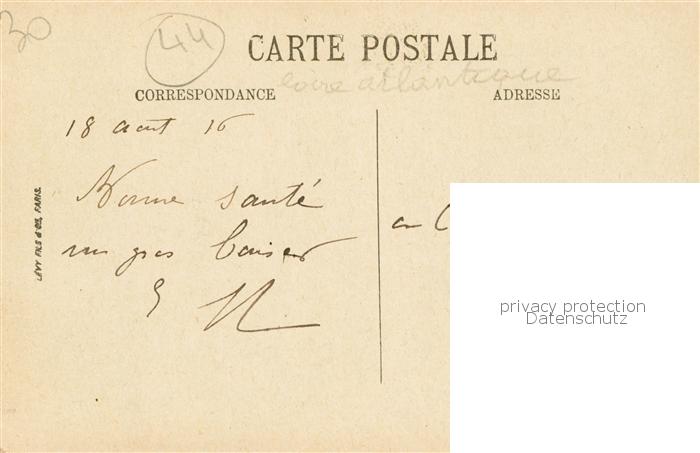 30
44
CARTE POSTALE
loire atlantique
CORRESPONDANCE
ADRESSE
18 aout 16
Bonne santé
un gros baiser
LÉVY FILS & Cie, PARIS.
privacy protection
Datenschutz